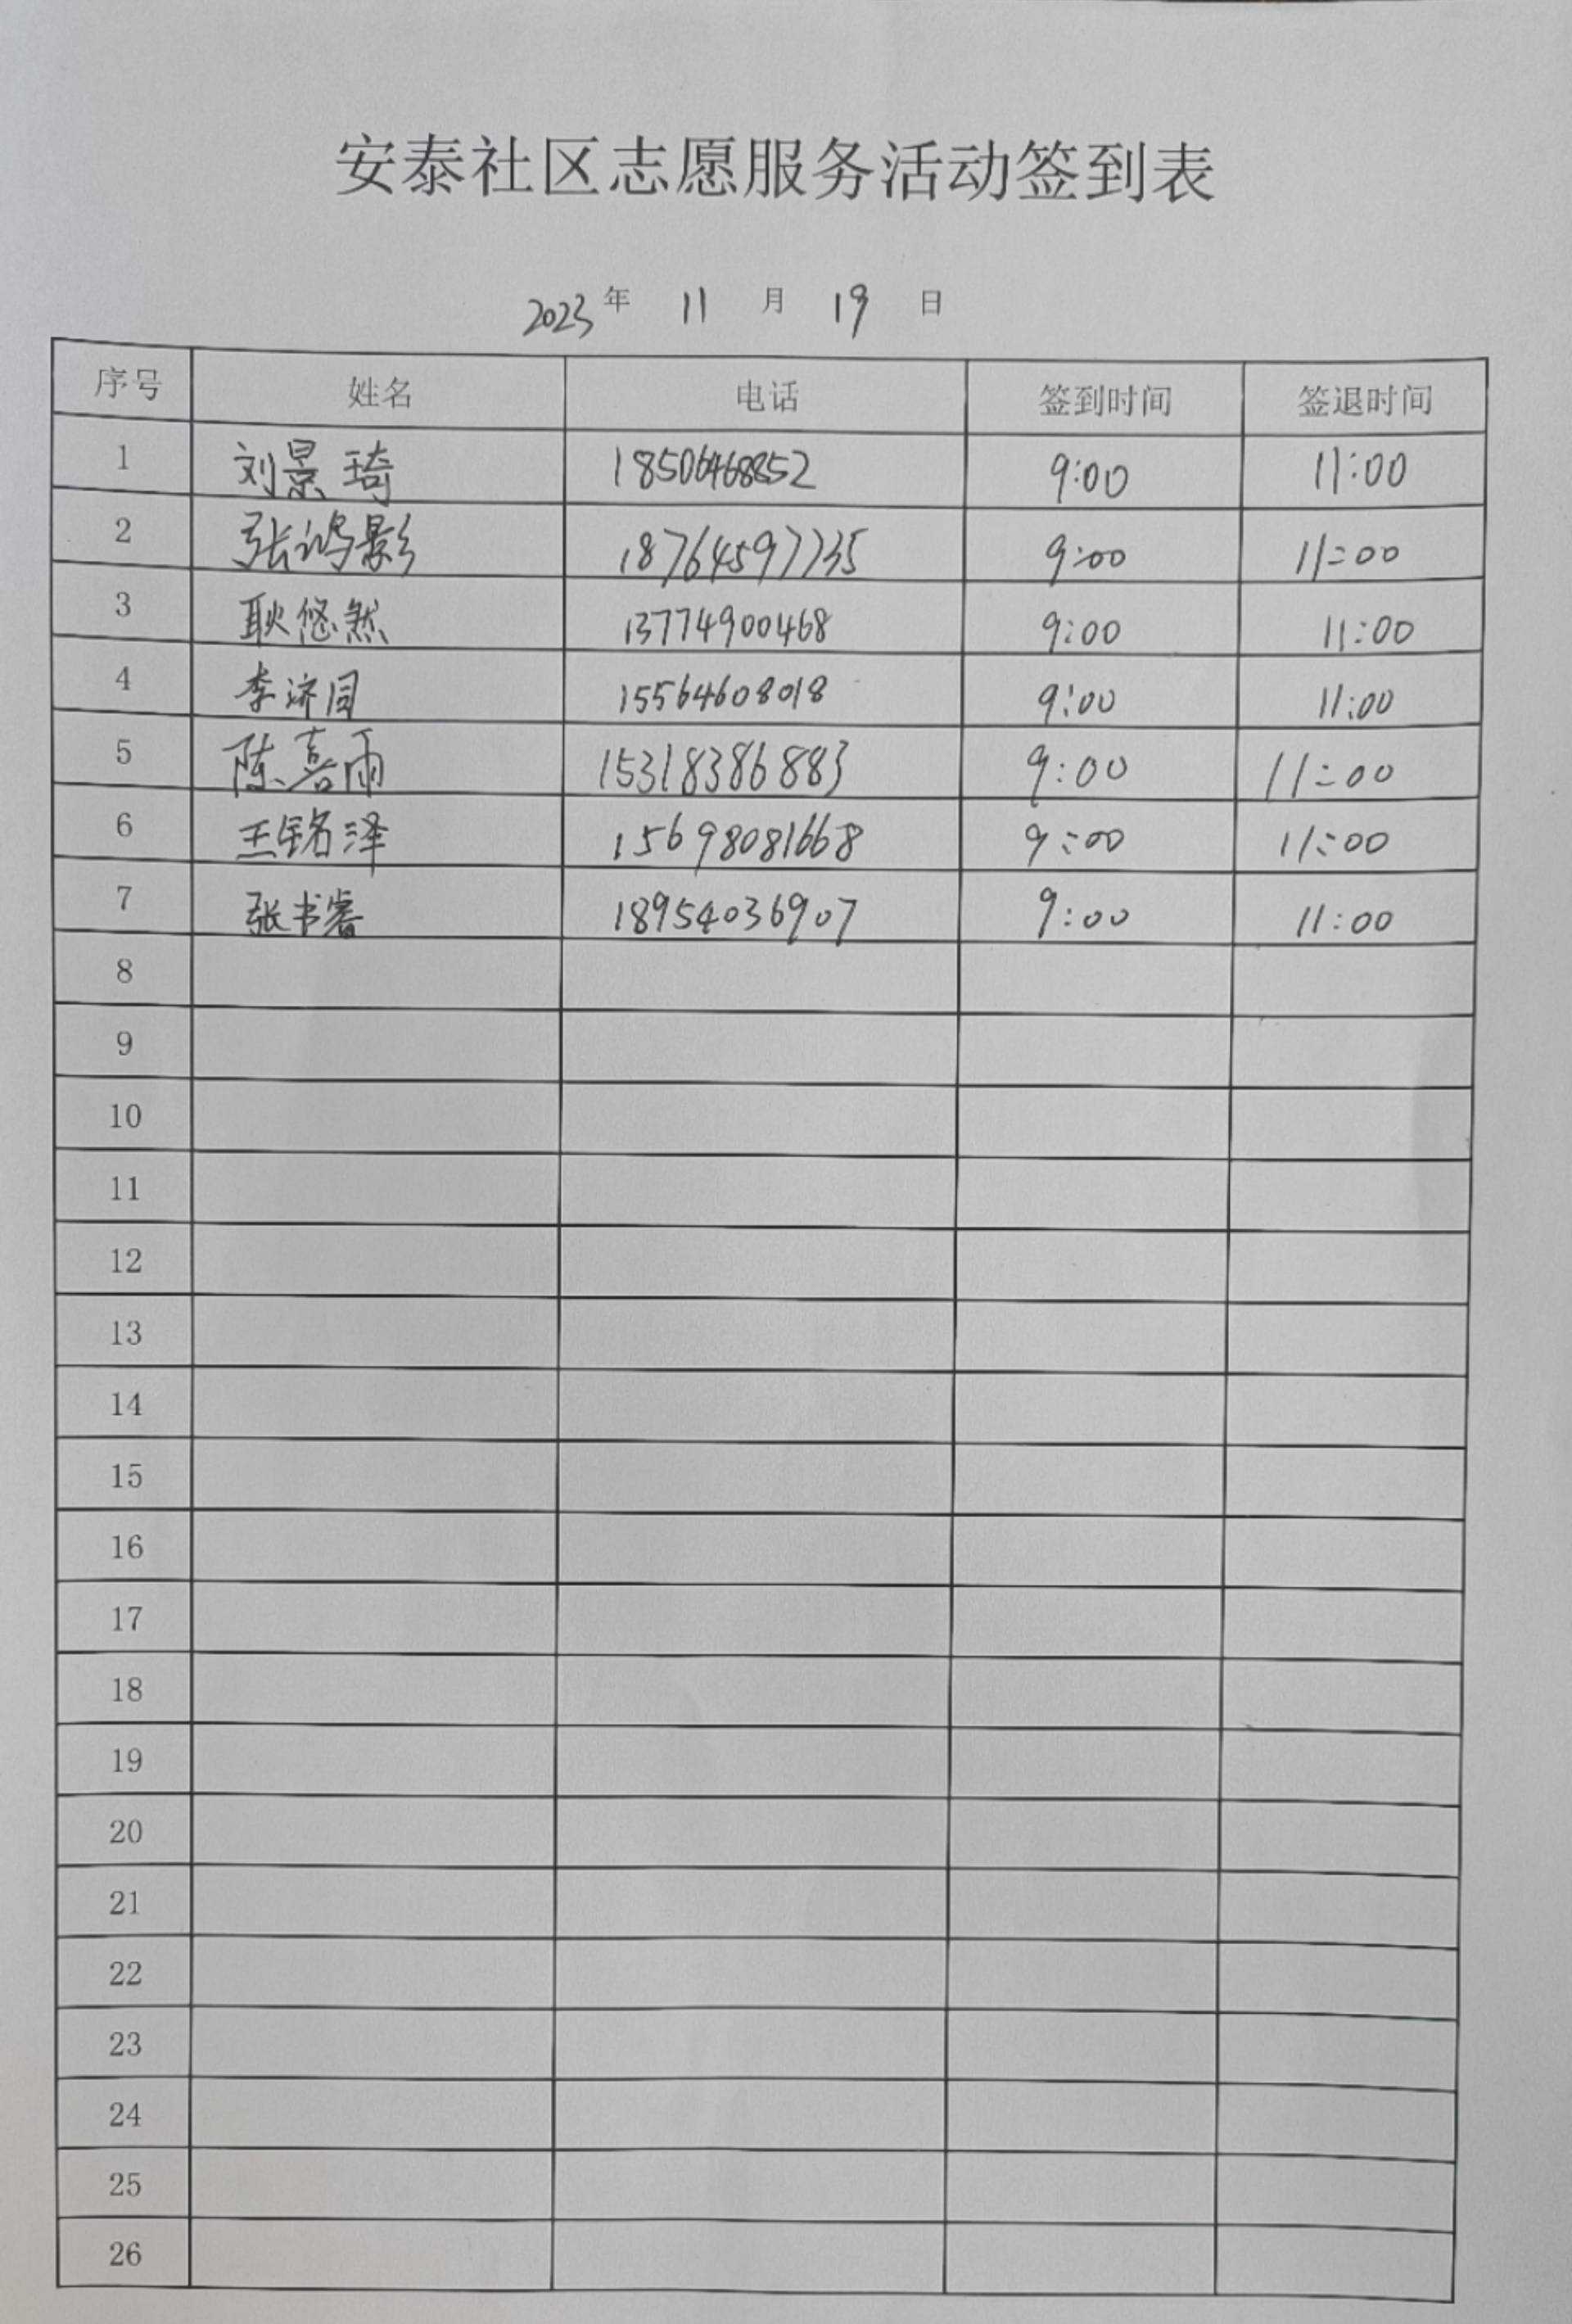 安泰社区志愿服务活动签到表
2023 年 11 月 19 日
序号 姓名 电话 签到时间 签退时间
1 刘景琦 18506468852 9:00 11:00
2 张鸿影 18764597735 9:00 11:00
3 耿悠然 13774900468 9:00 11:00
4 李济同 15564608018 9:00 11:00
5 陈喜雨 15318386883 9:00 11:00
6 王铭泽 15698081668 9:00 11:00
7 张书睿 18954036907 9:00 11:00
8
9
10
11
12
13
14
15
16
17
18
19
20
21
22
23
24
25
26